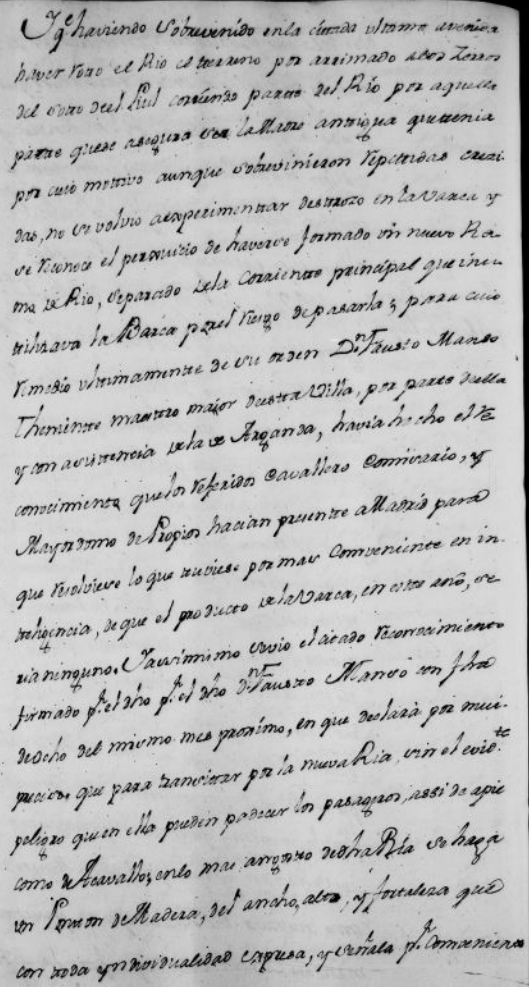 Y qe haviendo sobrevenido en la citada ultima avenida
haver roto el Rio el terreno por arrimado a los Zerros
del soto del Piul corriendo parte del Rio por aquella
parte que se asegura ser la Madre antigua que tenia
por cuio mottivo aunque sobrevinieron repettidas creci-
das, no se volvio a experimentar destrozo en la Varca y
se reconoce el perxuicio de haverse formado un nuevo Ra-
mo de Rio, separado de la Corriente principal que inu-
tilizava la Barca por el riesgo de pasarla; para cuio
remedio ultimamente de su orden Dn. Fausto Manso
Theniente maestro maior de esta Villa, por parte de ella
y con asistencia de la de Arganda, havia hecho el re-
conocimiento que los referidos Cavallero Comisario, y
Mayordomo de Propios hacian presente a Madrid para
que resolviese lo que tuviese por mas Conveniente en in-
teligencia, de que el producto de la Varca, en este año, se-
ria ninguno. Y assimismo se vio el citado reconocimiento
firmado pr. el dho pr. el dho Dn. Fausto Manso con fha
de ocho del mismo mes proximo, en que declara por mui
preciso, que para transitar por la nueva Ria, sin el evidte.
peligro que en ella pueden padecer los pasageros, assi de apie
como de Acavallo, en lo mas angosto de dha Ria se haga
un Ponton de Madera, del ancho, alto, y fortaleza que
con toda yndividualidad expresa, y señala pr. Conveniente